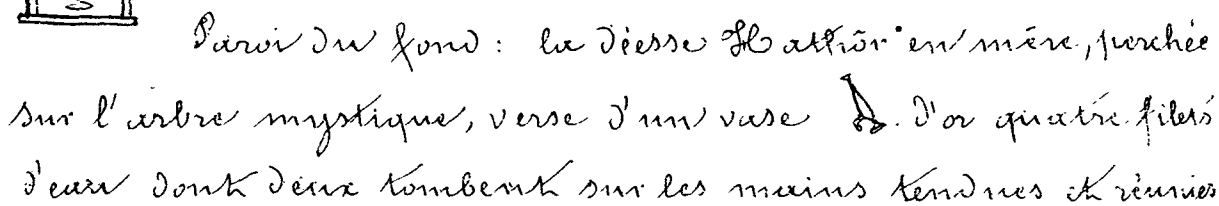 Paroi du fond : la déesse Hathôr en mère, perchée
sur l'arbre mystique, verse d'un vase d'or quatre filets
d'eau dont deux tombent sur les mains tendues et réunies